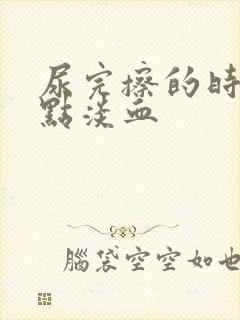 尿完擦的時
點淡血
腦袋空空如也